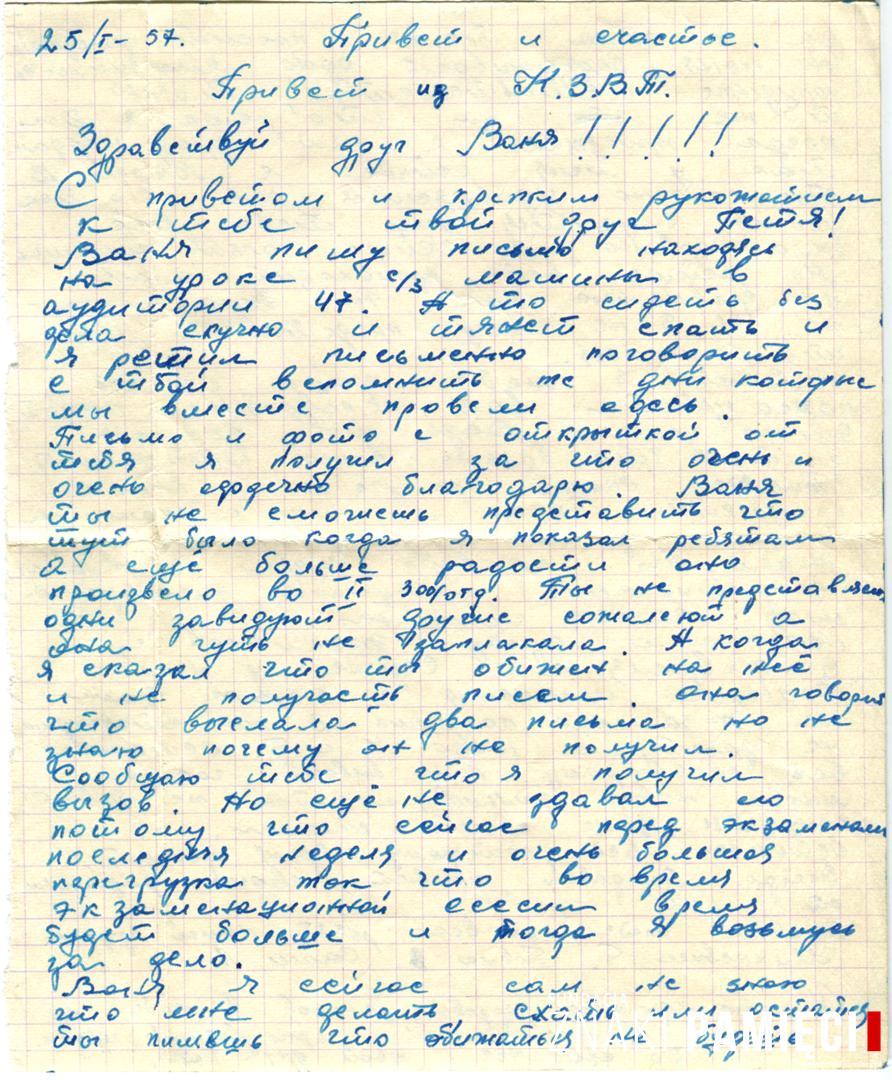 25/I-57. Привет и счастье.
Привет из К.З.В.Т.
Здравствуй друг Ваня!!!!!!
С приветом и крепким рукожатием
к тебе твой друг Петя!
Ваня пишу письмо находясь
на уроке с/з машины в
аудитории 47. А то сидеть без
дела скучно и тянет спать и
я решил письменно поговорить
с тбой вспомнить те дни которые
мы вместе провели здесь.
Письмо и фото с открыткой от
тебя я получил за что очень и
очень сердечно благодарю. Ваня
ты не сможешь представить что
тут было когда я показал ребятам
а ещё больше радости оно
произвело во II зоо/отд. Ты не представляешь
одни завидуют другие сожалеют а
она чуть не заплакала. А когда
я сказал что ты обижен на неё
и не получаеть писем. она говорит
что выслала два письма но не
знаю почему он не получил.
Сообщаю тебе что я получил
вызов. Но ещё не здавал его
потому что сейчас перед экзаменами
последняя неделя и очень большая
перегрузка так, что во время
экзаменационной сессии время
будет больше и тогда я возьмусь
за дело.
Ваня я сейчас сам не знаю
что мне делать или остаться
ты пишешь что обижаться
ZNAKI PAMIĘCI